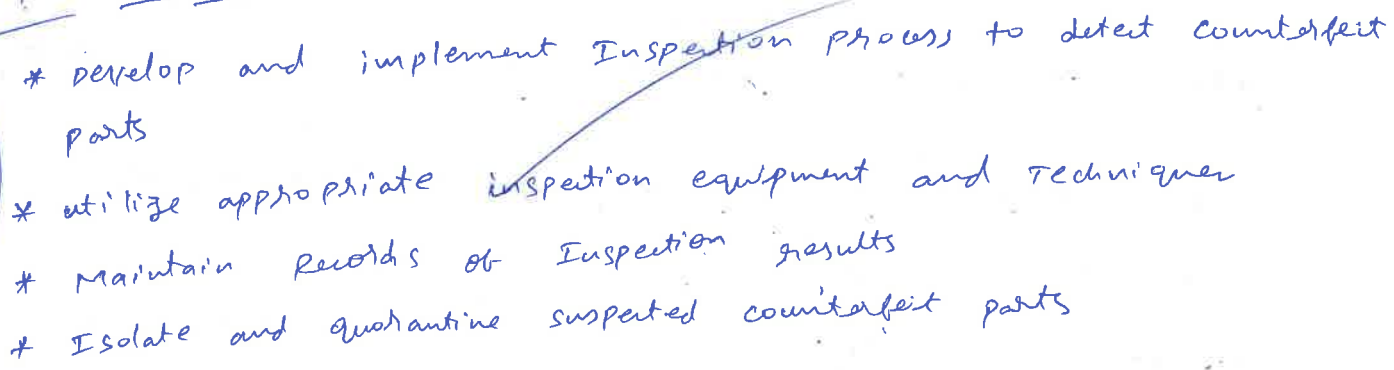 * Develop and implement Inspection process to detect counterfeit
parts
* utilize appropriate inspection equipment and Techniques
* Maintain Records of Inspection results
* Isolate and quarantine suspected counterfeit parts